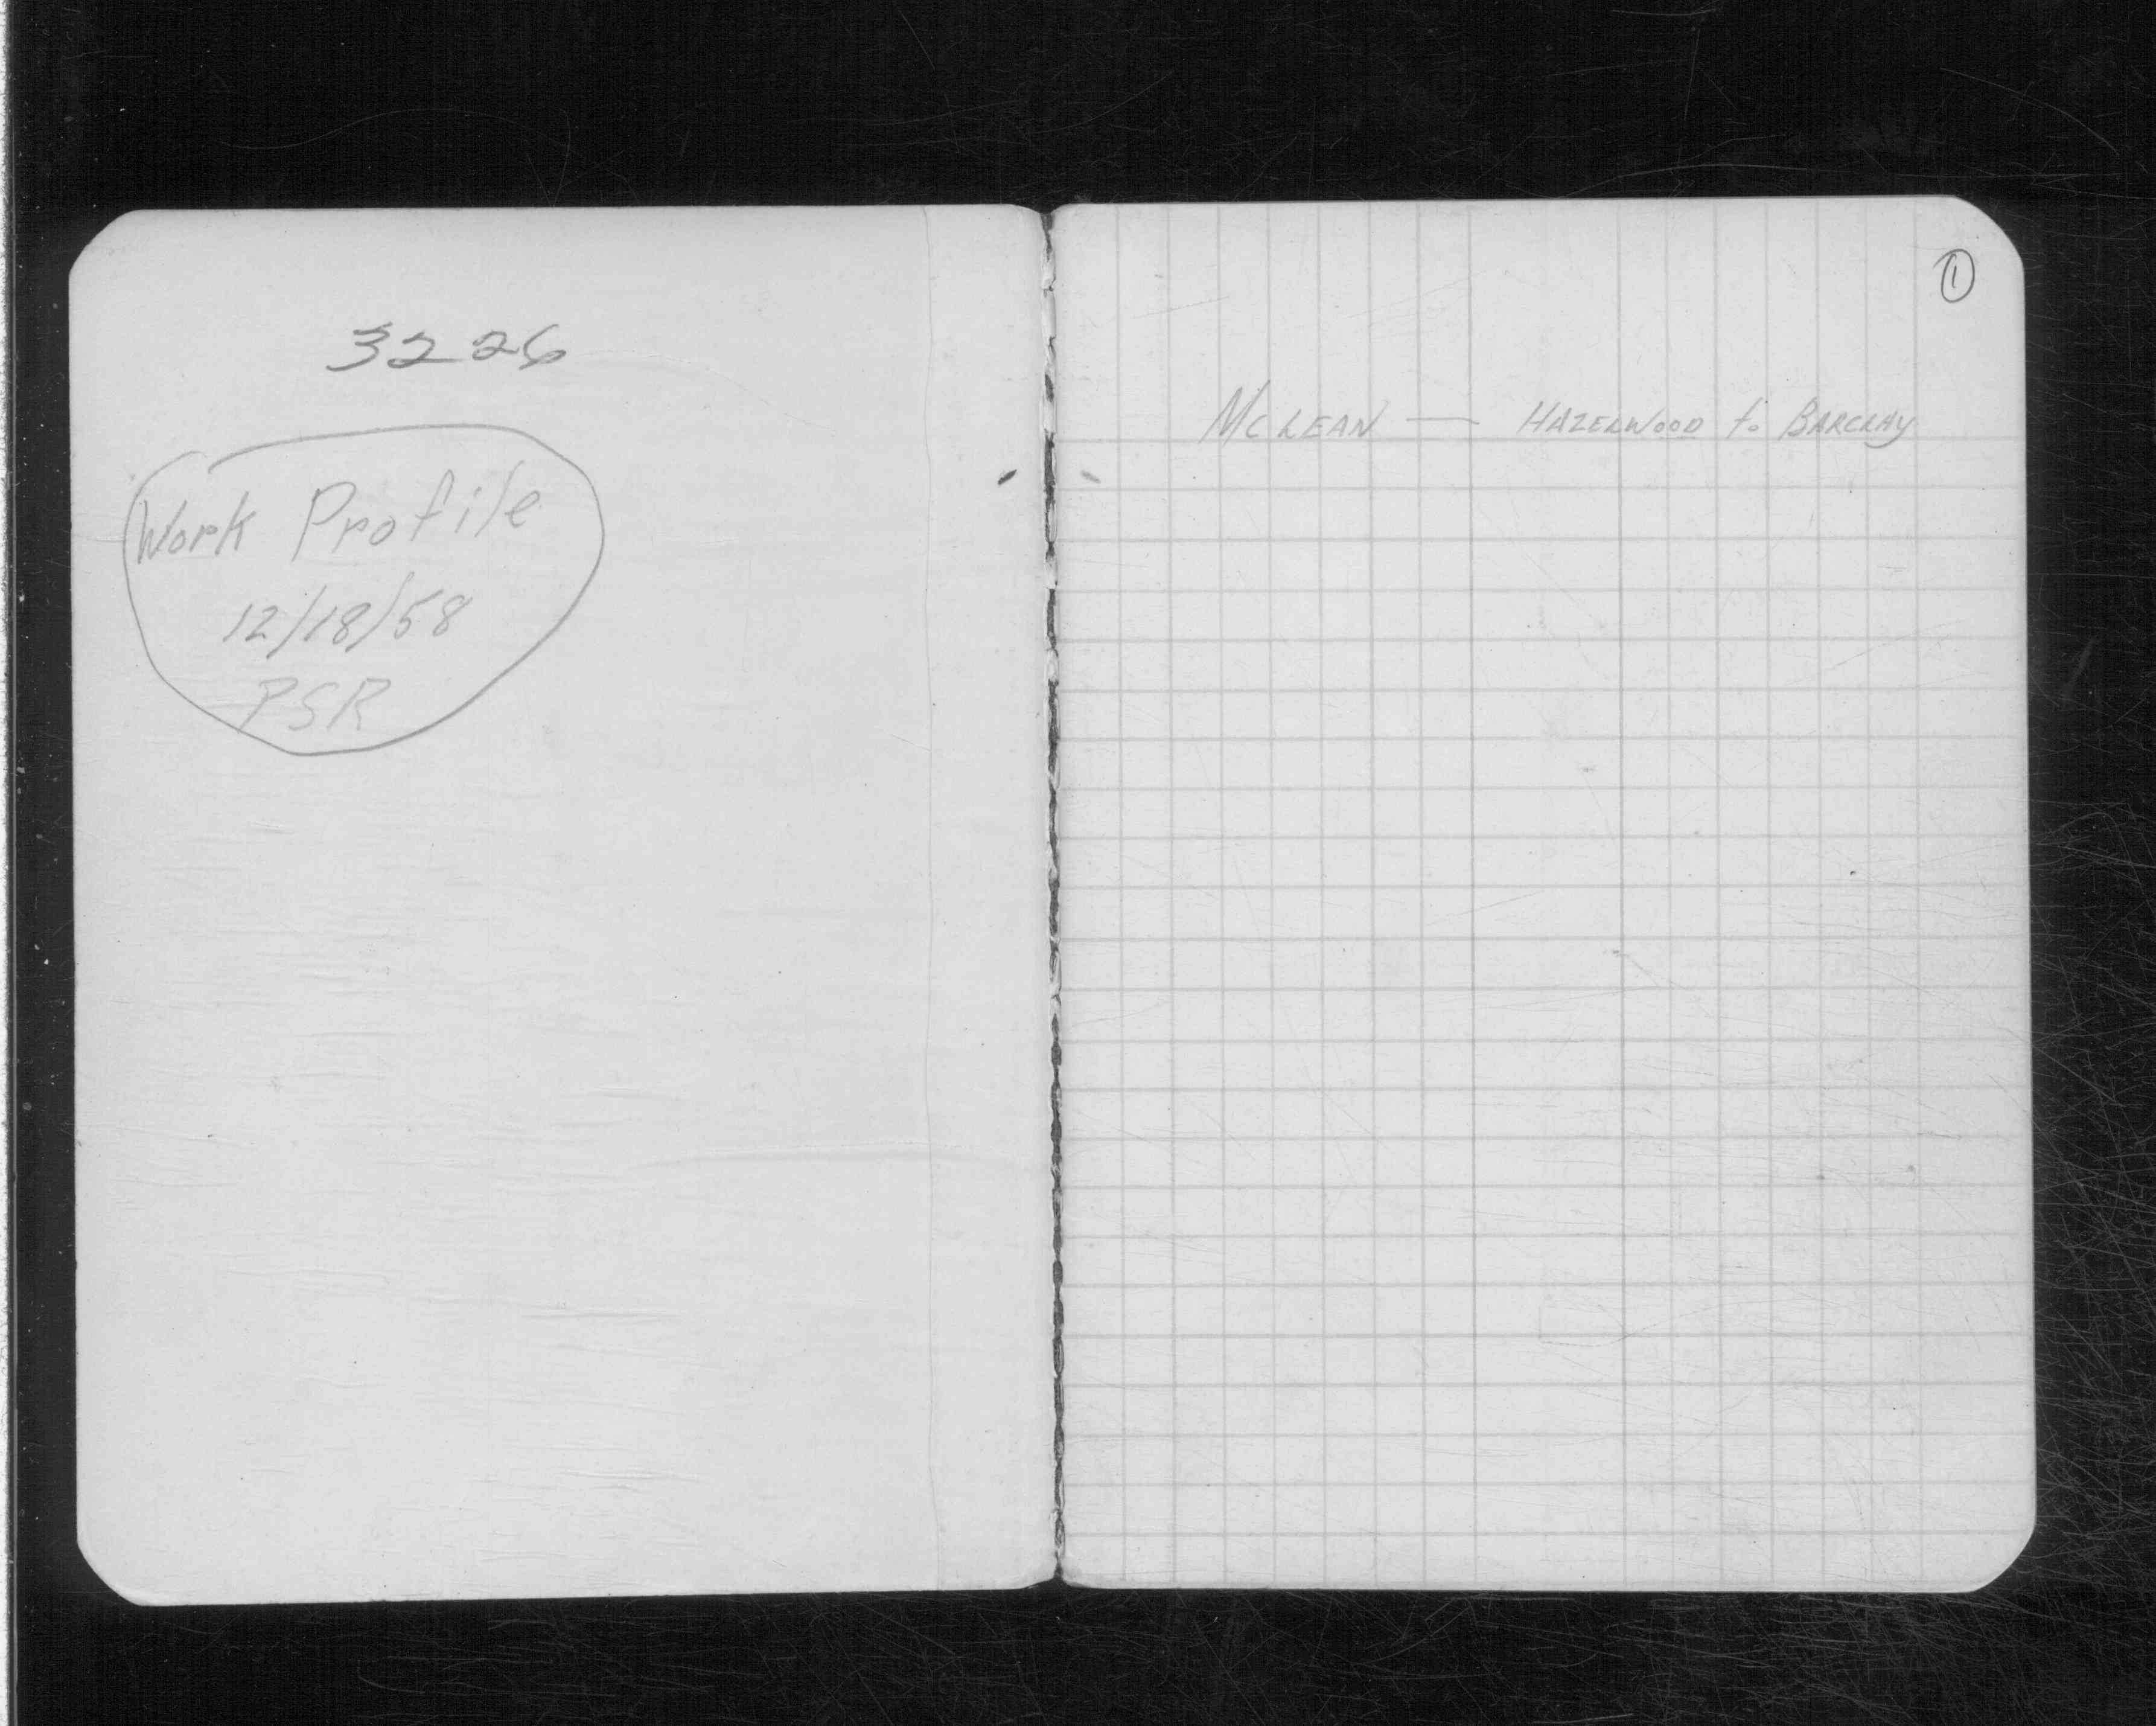 3226
Work Profile
12/18/58
PSR
1
McLEAN — HAZELWOOD to BARCLAY